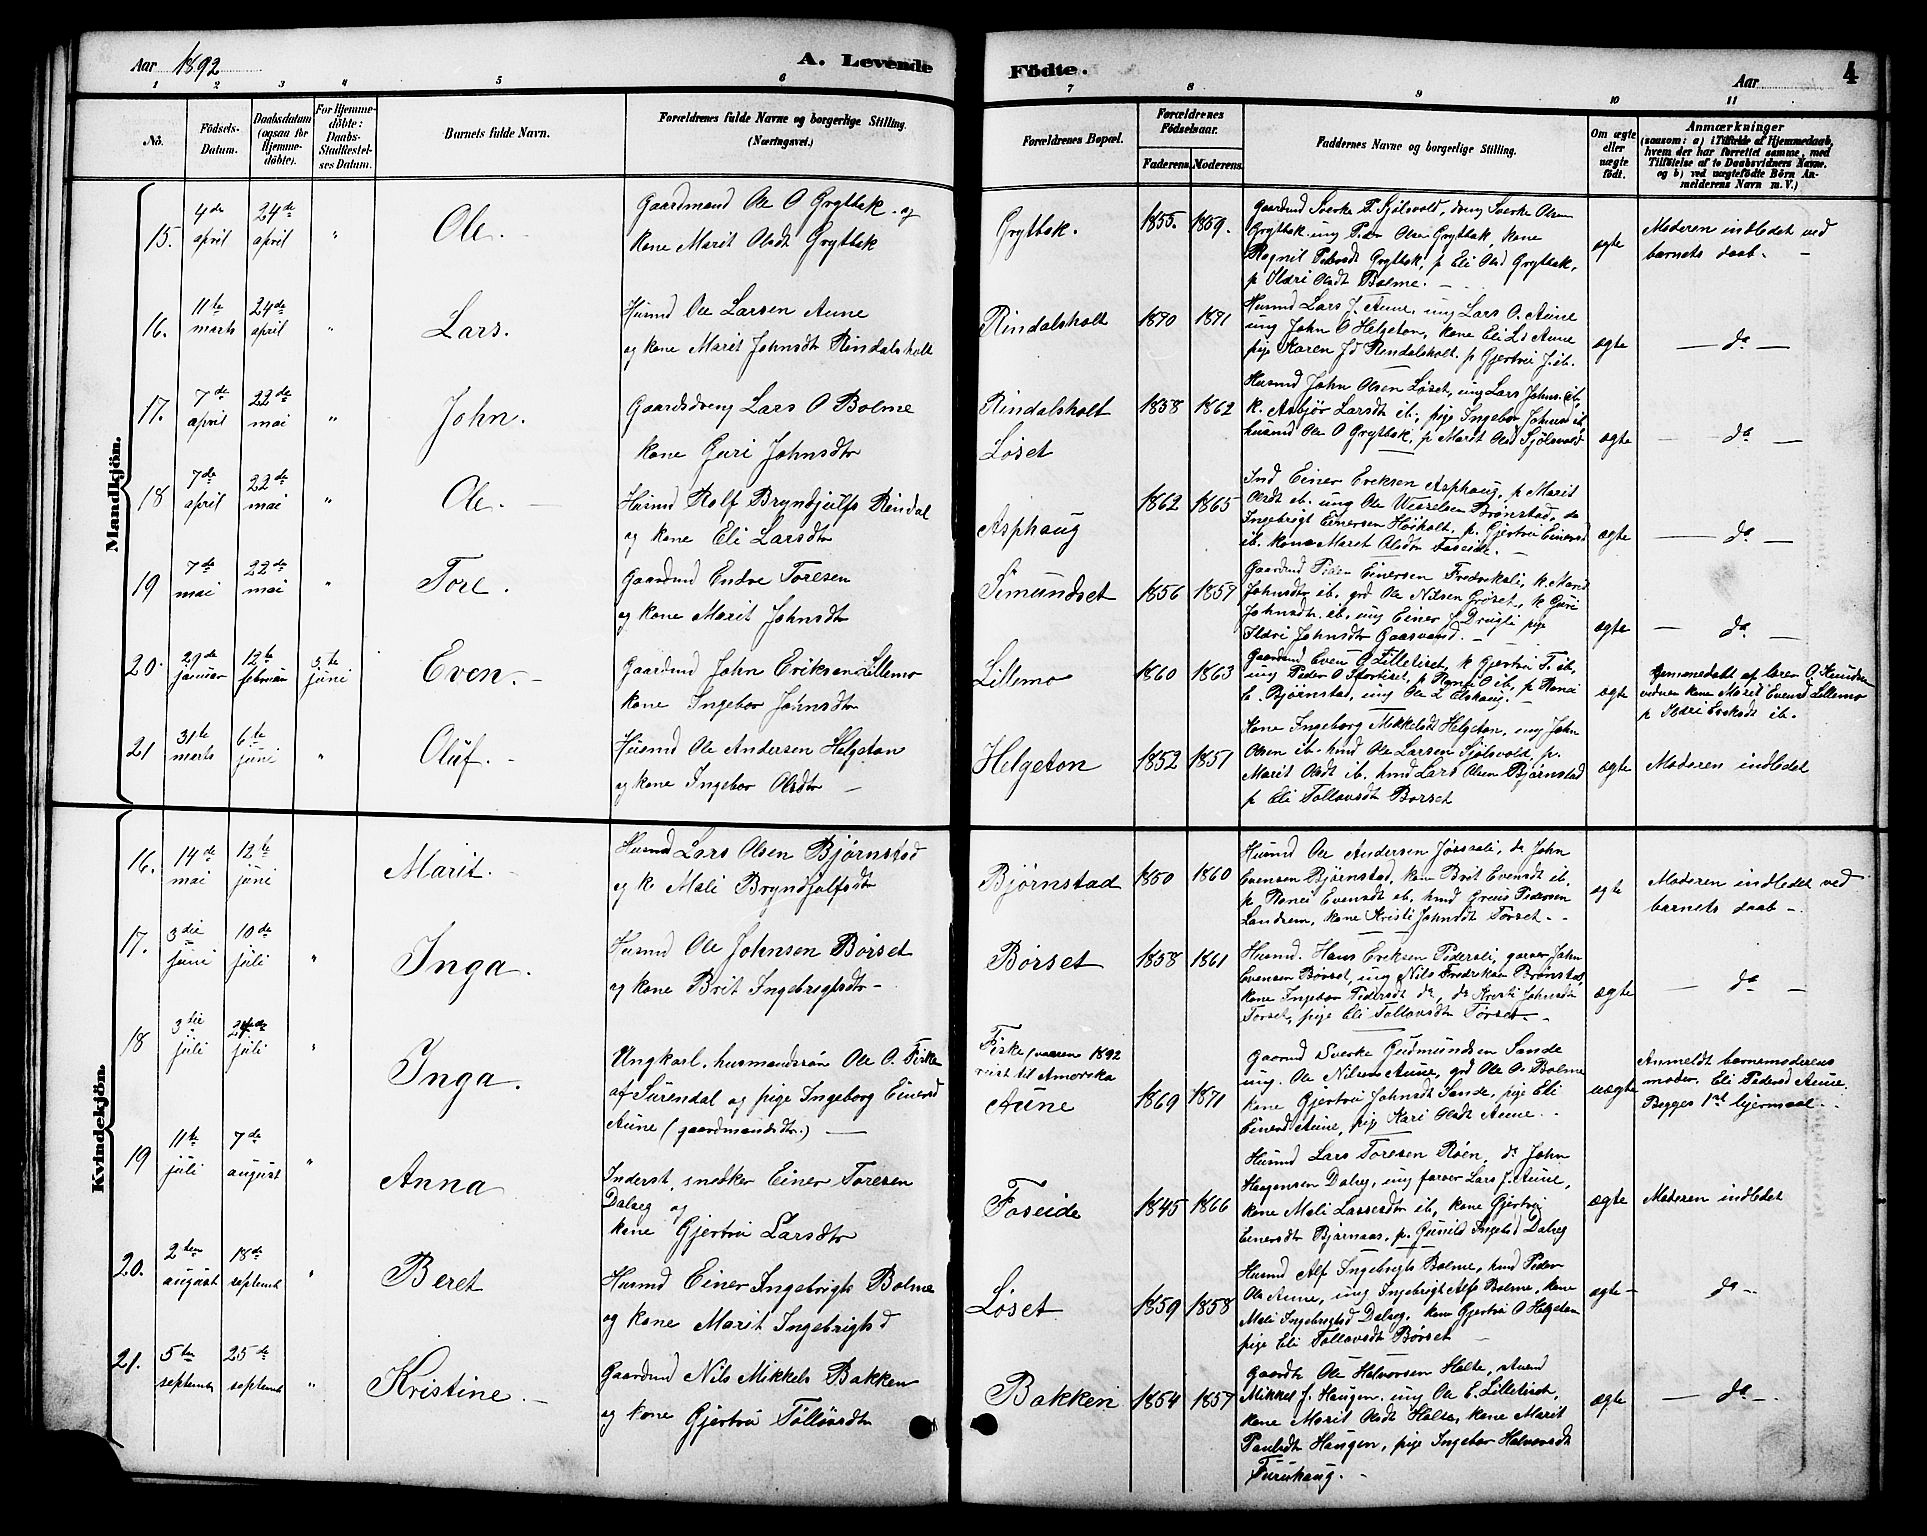 Aar 1892
A. Levende
Födte.
Aar
4
1 2 3 4 5 6 7 8 9 10 11
No.
Födsels-
Datum.
Daabsdatum
(ogsaa for
Hjemme-
döbte).
For Hjemme-
döbte:
Daabs-
Stadfæstel-
ses Datum.
Barnets fulde Navn.
Forældrenes fulde Navne og borgerlige Stilling.
(Næringsvei.)
Forældrenes Bopæl.
Forældrenes
Födselsaar.
Faderens.
Moderens.
Faddernes Navne og borgerlige Stilling.
Om ægte
eller
uægte
födt.
Anmærkninger
(saasom: a) i Tilfælde af Hjemmedaab,
hvem der har forrettet samme, med
Tilföielse af to Daabsvidners Navne.
og b) ved uægtefödte Börn An-
melderens Navn m. V.)
Mandkjön.
15. 4de april 24de april " Ole. -
Gaardmand Ole O Grytbak og
kone Marit Olsdt Grytbak
Grytbak. 1855. 1859.
Gaardmd Sverke P. Sjølsvold, dreng Sverke Olsen
Grytbak ung Peder Olsen Grytbak, kone
Ragnil Pedersdt Grytbak, p Eli Olsd Grytbak,
p Ildri Olsdt Bolme. -
ægte
Moderen indledet ved
barnets daab. -
16. 11te marts 24de april " Lars.
Husmd Ole Larsen Aune
og kone Marit Johnsdtr Rindalsholt
Rindalsholt 1870 1871
Husmd Lars J. Aune, ung Lars O. Aune
ung John O Helgeton, kone Eli Ld Aune
pige Karen Jd Rindalsholt. p Gjertrú J. ib.
ægte
— do —
17. 7de april 22de mai " John.
Gaardsdreng Lars O Bolme
kone Guri Johnsdtr
Rindalsholt
Løset
1858 1862
Husmd John Olsen Løset, ung Lars Johns. ib,
k. Asbjør Larsdt ib., pige Ingebor Johnsd ib,
husmd Ole O Grytbak, p Marit Olsd Sjølsvold
ægte
— do —
18 7de april 22de mai " Ole. —
Husmd Rolf Bryndjulfs Rindal
og kone Eli Larsdtr
Asphaug 1862 1865
Ind Einer Eriksen Asphaug, p Marit
Olsdt ib. ung Ole Wesselsen Brønstad, do
Ingebrigt Einersen Høiholt, p. Gjertrú Einersd
ib. kone Maret Olsdtr Foseide. -
ægte
— do —
19 7de mai 22de mai " Tore.
Gaardmd Endre Toresen
og kone Marit Johnsdtr
Simundset 1856 1857
Gaardmd Peder Einersen Fredrekali, k. Marit
Johnsdtr ib, grd Ole Nilsen Grøset, k Guri
Johnsdtr. ib, ung Einer J Drugli pige
Ildri Johnsdtr Gaasvand. -
ægte
— do —
20. 29de januar 12te februar 5te juni Even. -
Gaardmd John Eriksen Lillemo
kone Ingebor Johnsdtr
Lillemo 1860 1863
Gaardmd Even O Lilletiset, k Gjertrú T. ib,
ung Peder O Stortiset, p Ranei O ib, p Ranei
E. Bjørnstad, ung Ole L Elshaug. -
ægte
Hjemmedøbt af lærer O. Knudsen
vidner kone Marit Evensd Lillemo
p Ildri Eriksdt ib.
21 31te marts 6te juni " Oluf. -
Husmd Ole Andersen Helgeton
og kone Ingebor Olsdtr —
Helgeton 1852 1851
Kone Ingeborg Mikkelsdt Helgeton, ung John
Olsen ib. hmd Ole Larsen Sjølsvold, p.
Marit Olsdt ib. hmd Lars Olsen Bjørnstad
p Eli Tollevsdt Børset
ægte
Moderen indledet
Kvindekjön.
16. 14de mai 12te juni Marit. -
Husmd Lars Olsen Bjørnstad
og k. Mali Bryndjulfsdt
Bjørnstad 1850 1860
Husmd Ole Andersen Jøssøali, do John
Evensen Bjørnstad, kone Brit Evensdt ib,
p. Ranei Evensdt ib. hmd Greis Pedersen
Landsem, kone Kristi Johnsdt Torset. -
ægte
Moderen indledet ved
barnets daab -
17. 3die juni 10de juli " Inga.
Husmd Ole Johnsen Børset
og kone Brit Ingebrigtsdtr -
Børset 1858 1861
Husmd. Hans Eriksen Pedersli, garver John
Evensen Børset, ung Nils Fredriksen Brønstad,
kone Ingebor Pedersdt do, do Kristi Johnsdt
Torset, pige Eli Tollevsdt Torset. -
ægte
— do —
18 3die juli 24de juli " Inga.
Ungkarl, husmandssøn Ole O. Fiske
af Surendal og pige Ingeborg Einersd
Aune (gaardmandsdtr.) —
Fiske (vaaren 1892
reist til Amerika
Aune
1869 1871
Gaarmd Sverke Gudmundsen Sande
ung. Ole Nilsen Aune, grd Ole O. Bolme
kone Gjertrú Johnsdt Sande, pige Eli
Einersd Aune, pig Kari Olsdt Aune. -
uægte
Anmeldt barnemoderens
moder, Eli Pedersd Aune,
Begges 1ste leiermaal. -
19 11te juli 7de august " Anna
Inderst, snedker Einer Toresen
Dalseg og
kone Gjertrú Larsdtr
Foseide 1845 1866
Husmd Lars Toresen Røen, do John
Haagensen Dalseg, ung farver Lars J. Aune,
kone Mali Lassesdtr ib, kone Gjertrú
Einersdtr Bjørnaas, p. Gunild Ingebd Dalseg
ægte
Moderen indledet
20. 2den august 18de septembr " Beret
Husmd Einer Ingebrigts Bolme
og kone Marit Ingebrigtsd
Løset 1859 1858
Husmd Alf Ingebrigts Bolme, hmd Peder
Ols Aune, ung Ingebrigt Alfs Bolme, kone
Mali Ingebrigtsd Dalseg, kone Gjertrú O Helgeton
pige Eli Tollevsdt Børset —
ægte -
do -
21. 5ten septembr 25de septembr " Kristine. -
Gaardmd Nils Mikkels Bakken
og kone Gjertrú Tollevsdtr
Bakken 1854 1857
Gaardb Ole Halvorsen Holte,
Mikkel J. Haugen, ung Ole E. Lilletiset,
kone Marit Olsdt Holte, kone Marit
Paulsdt Haugen, pige Ingebor Halvorsdt
Furuhaug. -
ægte
— do —